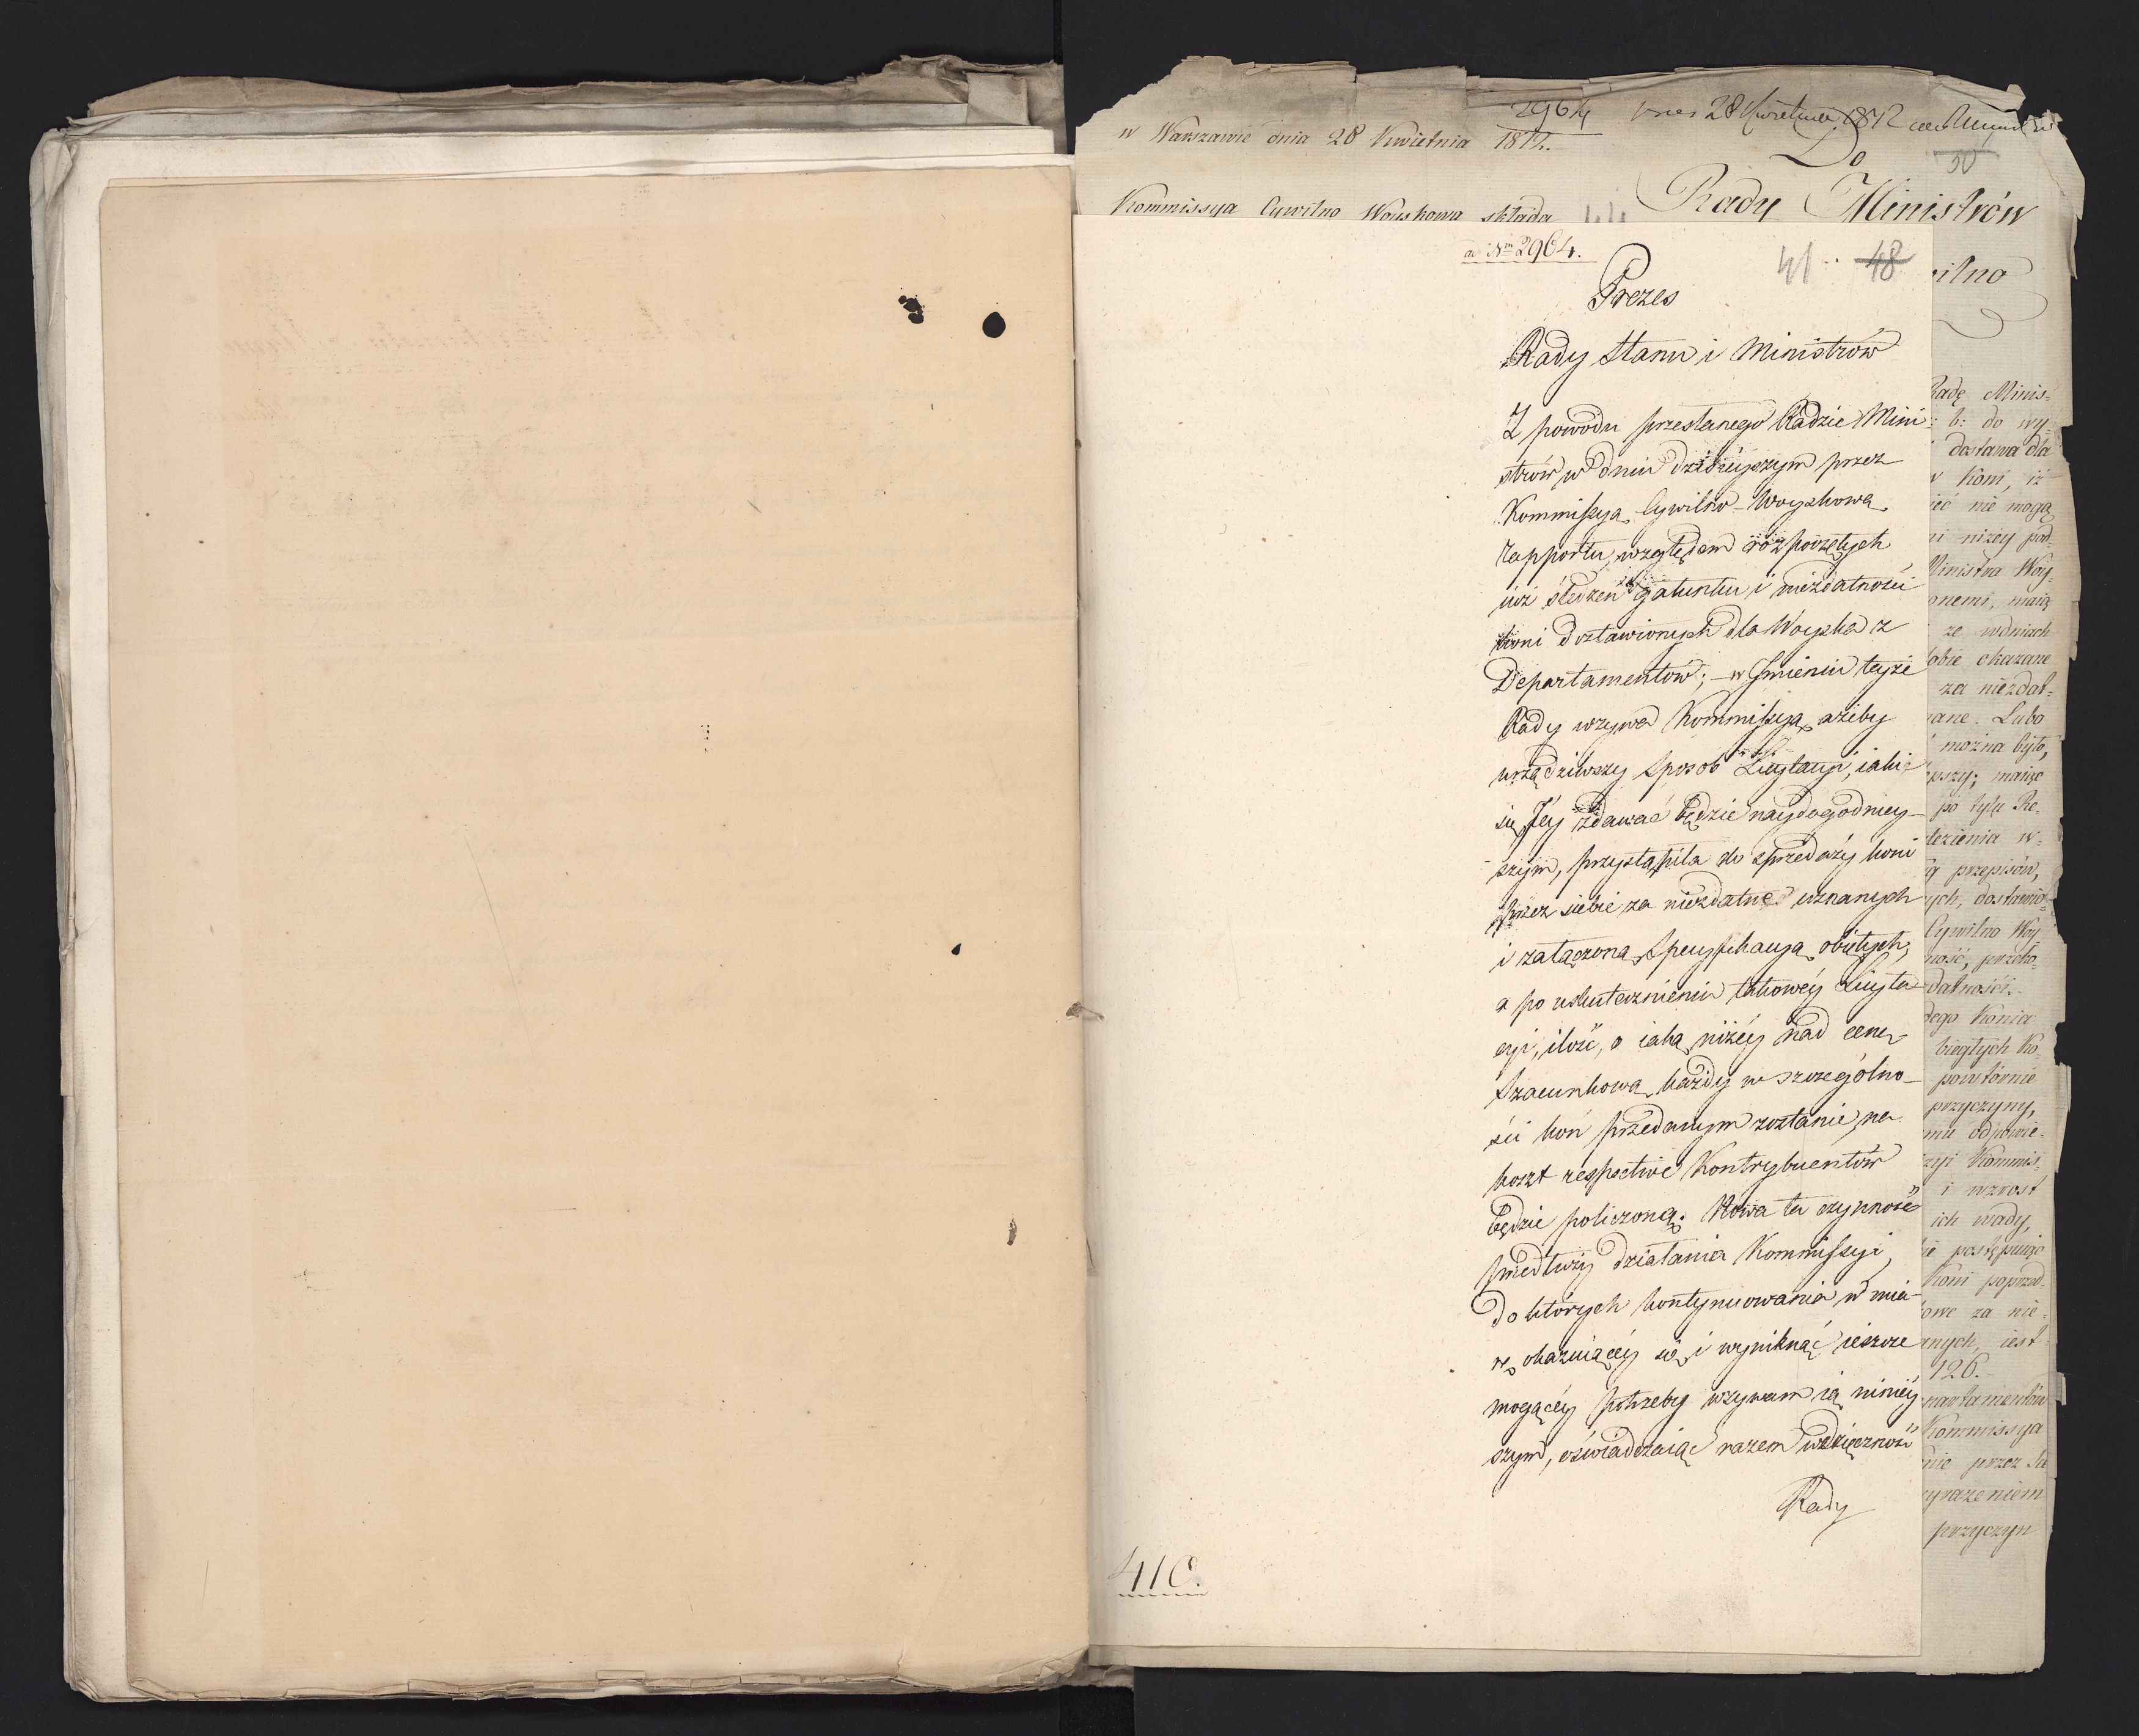 2964
w Warszawie dnia 28 Kwietnia 1812.
28 Kwietnia 1812
Do
50
Kommissya Cywilno Woyskowa składa
44
Rady Ministrów
ad Nrm 2964.
41
48
Prezes
Rady Stanu i Ministrów
Z powodu przesłanego Radzie Mini-
strów w dniu dzisieyszym przez
Kommissyą Cywilno-Woyskową
rapportu, względem rozpoczętych
iuż śledzeń gatunku i niezdatności
koni dostawionych dla Woyska z
Departamentów; – w Jmieniu teyże
Rady wzywa Kommissyą, ażeby
urządziwszy sposób Licytacyi, iaki
się Jéy zdawać będzie naydogodniey-
szym, przystąpiła do sprzedaży koni
przez siebie za niezdatne uznanych
i załączoną specyfikacyą obiętych,
a po uskutecznieniu takowéy Licyta-
cyi, ilość, o iaką niżéy nad cenę
szacunkową każdy w szczególno-
ści koń przedanym zostanie, na
koszt respective Kontrybuentów
będzie policzoną. Nowa ta czynność
przedłuży działania Kommissyi,
do których kontynuowania w mia-
rę okazuiącéy się i wyniknąć ieszcze
mogącéy potrzeby wzywam ią niniéy-
szym, oświadczaiąc razem wdzięczność
Rady
410.
ilno
Radę Minis-
b: do wy-
dostawa dla
Koni, iż
ieć nie mogą
ni niżey pod-
Ministra Woy-
onemi, maią
ze wdniach
obie okazane
za niezdat-
ane. Lubo
można było,
pszy; maiąc
po tylu Re-
lezienia w-
ą przepisów,
ych, dostawio-
Cywilno Woy-
ność, przeko-
datności.
dego Konia
biegłych Ko-
powtórnie
przyczyny,
mu odpowie-
yi Kommis-
i wzrost
ich wady,
ie postępuiąc
Koni poprzed-
owe za nie-
anych, iest
126.
partamentów
Kommissya
nie przez Su
yrażeniem
przyczyn